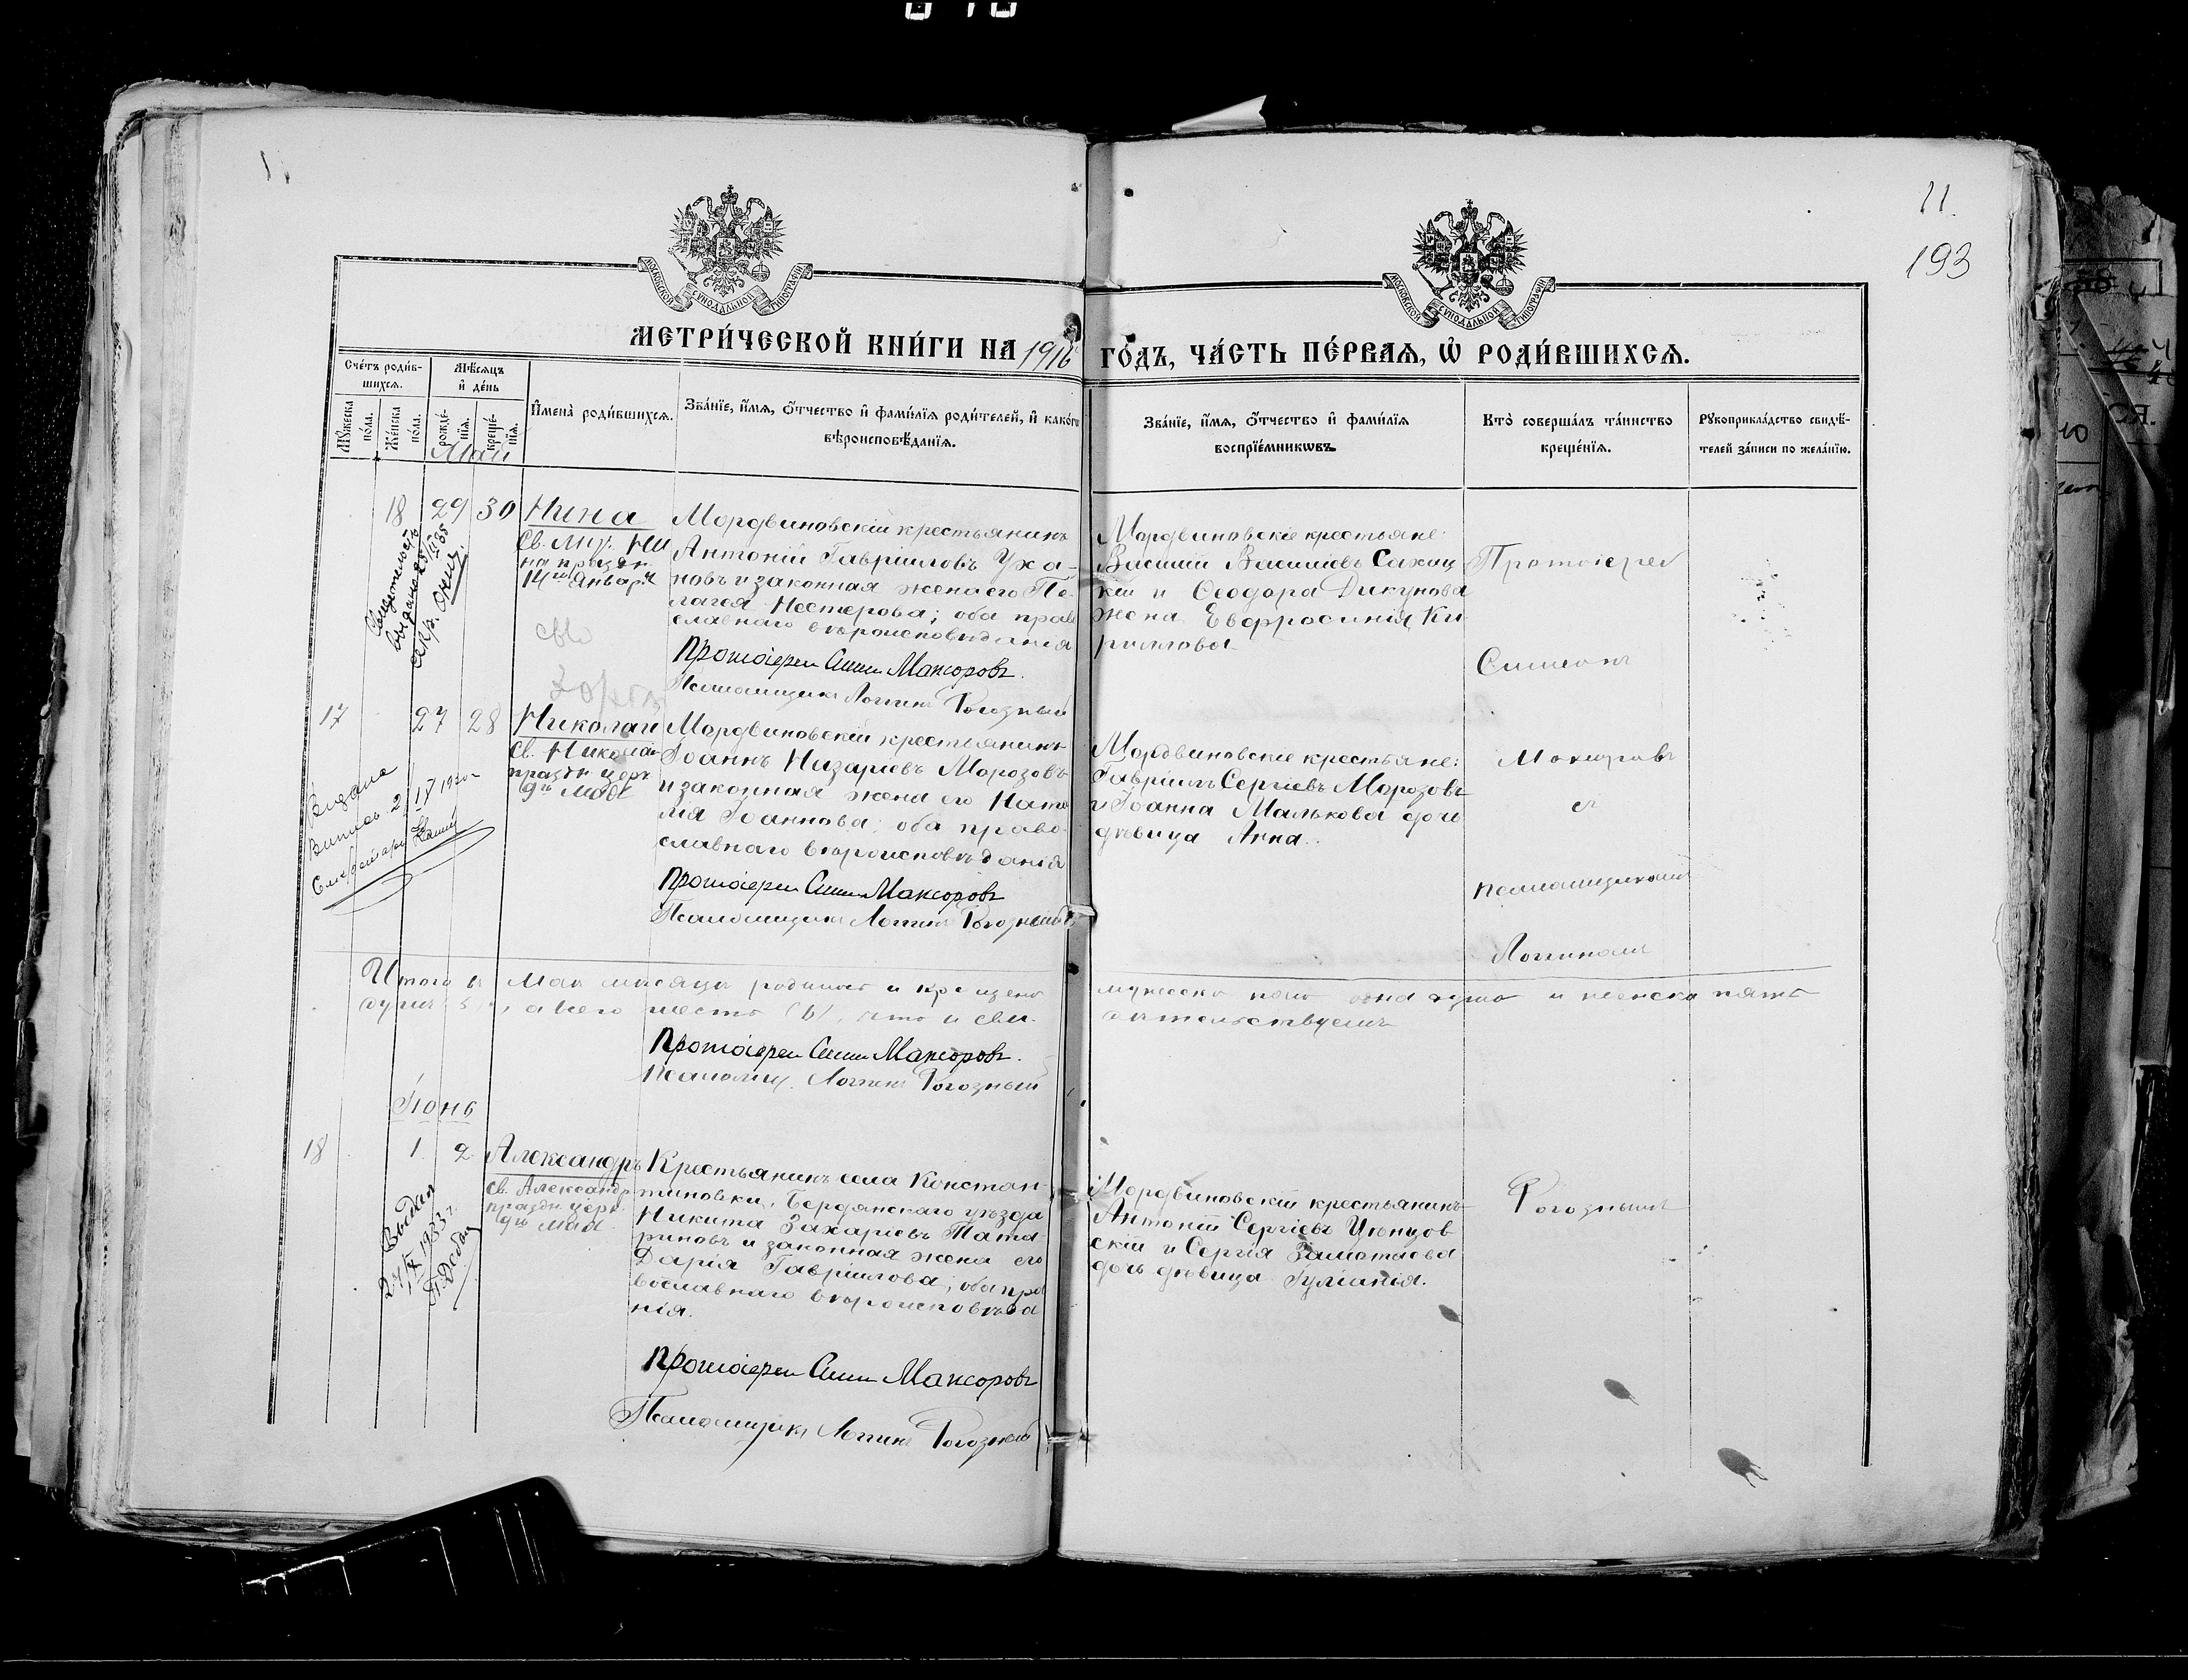 11
193
МОСКОВСКОЙ СѴНОДАЛЬНОЙ ТИПОГРАФІИ
МОСКОВСКОЙ СѴНОДАЛЬНОЙ ТИПОГРАФІИ
МЕТРИ́ЧЕСКОЙ КНИ́ГИ НА 1916 ГО́ДЪ, ЧА́СТЬ ПЕ́РВАѦ, Ѡ҆ РОДИ́ВШИХСѦ.
Сче́тъ роди́в-
шихсѧ.
Мꙋ́жеска по́ла.
Же́нска по́ла.
Мѣ́сѧцъ
и҆ де́нь
рожде́-
нїѧ.
креще́-
нїѧ.
И҆мена̀ роди́вшихсѧ.
Зва́нїе, и҆́мѧ, ѻ҆́тчество и҆ фами́лїѧ роди́телей, и҆ како́гѡ
вѣроисповѣ́данїѧ.
Зва́нїе, и҆́мѧ, ѻ҆́тчество и҆ фами́лїѧ
воспрїе́мникѡвъ.
Кто̀ соверша́лъ та́инство
креще́нїѧ.
Рꙋкоприкла́дство свидѣ́-
телей за́писи по жела́нїю.
Май
18 29 30 Нина
Св. муч. Ни
на праздн
14го Январ.
Мордвиновскій крестьянинъ
Антоній Гавріиловъ Уха-
новъ и законная жена его Пе-
лагея Нестерова; оба право
славнаго вѣроисповѣданія
Протоіерей Симеон Мажоровъ.
Псаломщикъ Логгинъ Рогозный
Мордвиновскіе крестьяне:
Василій Васильевъ Сахац
кій и Ѳеодора Дикунова
жена Евфросинія Ки
риллова.
Протоіерей
Симеонъ
Мажоровъ
съ
псаломщикомъ
Логгиномъ
Рогознымъ
17 27 28 Николай
Св. Николая
праздн церк
9го Мая
Выдана
Выпись 2/IV 1920
Мордвиновскій крестьянинъ
Іоаннъ Назаріевъ Морозовъ
и законная жена его Ната
лія Іоаннова; оба право-
славнаго вѣроисповѣданія
Протоіерей Симеон Мажоровъ
Псаломщикъ Логгинъ Рогозный
Мордвиновскіе крестьяне:
Гавріилъ Сергіевъ Морозовъ
и Іоанна Малькова дочь
дѣвица Анна.
Итого въ Маѣ мѣсяцѣ родилось и крещено мужеска пола одна душа и женска пять
душъ, а всего шесть (6), что и сви-
дѣтельствуемъ
Протоіерей Симеон Мажоровъ.
Псаломщ. Логгинъ Рогозный
Іюнь
18 1 2 Александръ
Св. Александр
праздн. церк.
Мая.
Выдан
1933 г.
Крестьянинъ села Констан-
тиновки, Бердянскаго уѣзда
Никита Захаріевъ Тата-
риновъ и законная жена его
Дарія Гавріилова; оба пра
вославнаго вѣроисповѣда
нія.
Протоіерей Симеон Мажоровъ
Псаломщикъ Логгинъ Рогозный
Мордвиновскій крестьянинъ
Антоній Сергіевъ
скій и Сергія Заметаева
дочь дѣвица Іуліанія.